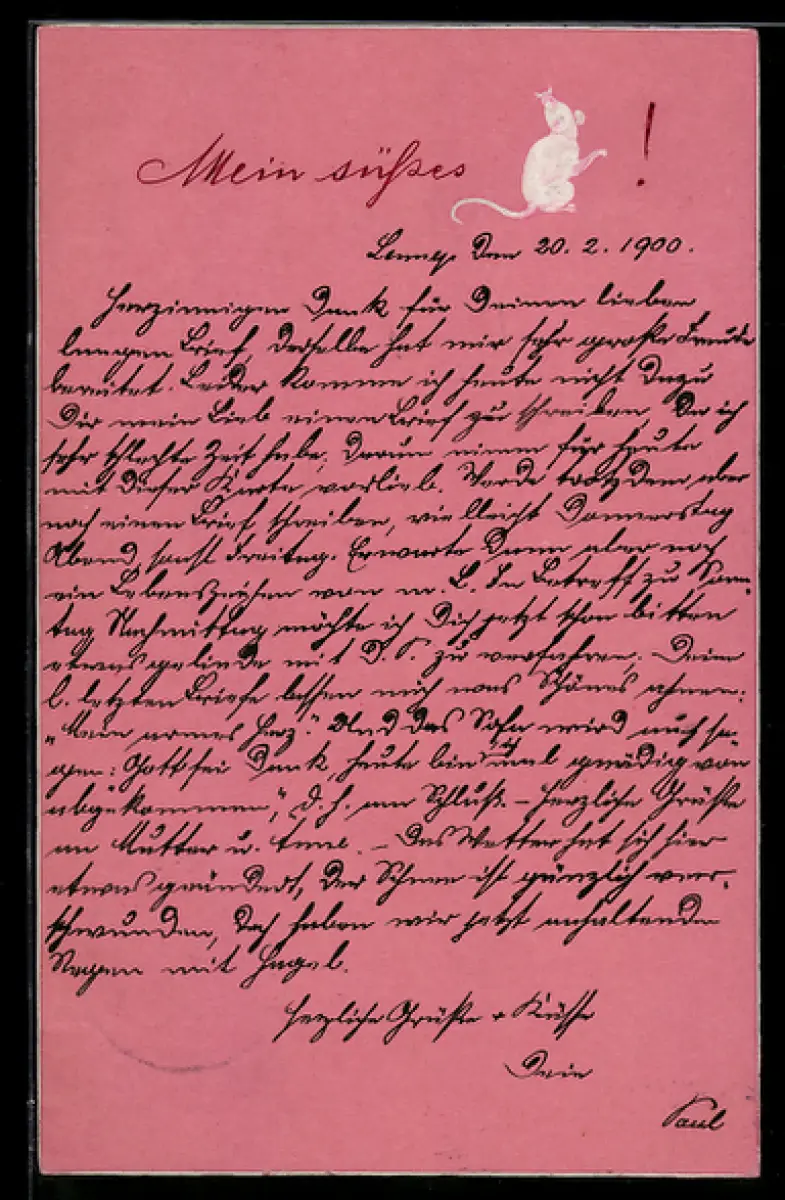 Mein süßes !
Lennep den 20. 2. 1900.
Herzinnigen Dank für Deinen lieben
langen Brief, derselbe hat mir sehr große Freude
bereitet. Leider komme ich heute nicht dazu
Dir mein Lieb einen Brief zu schreiben, da ich
sehr schlechte Zeit habe, darum nimm für heute
mit dieser Karte vorlieb. Werde trotzdem aber
noch einen Brief schreiben, vielleicht Donnerstag
Abend, sonst Freitag. Erwarte dann aber noch
ein Lebenszeichen von m. L. In Betreff zu Sonn-
tag Nachmittag möchte ich Dich jetzt schon bitten
etwas gelinde mit D. P. zu verfahren. Deine
l. letzten Briefe lassen mich was Schönes ahnen:
"Mein armes Herz." Und das Sofa wird auch sa-
gen: Gott sei Dank, heute bin ich mal gnädig von
abgekommen", d. h. am Schluß. – Herzliche Grüße
an Mutter u. – Das Wetter hat sich hier
etwas geändert, der Schnee ist gänzlich ver-
schwunden, doch haben wir jetzt anhaltenden
Regen mit Hagel.
Herzliche Grüße + Küsse
Dein
Paul